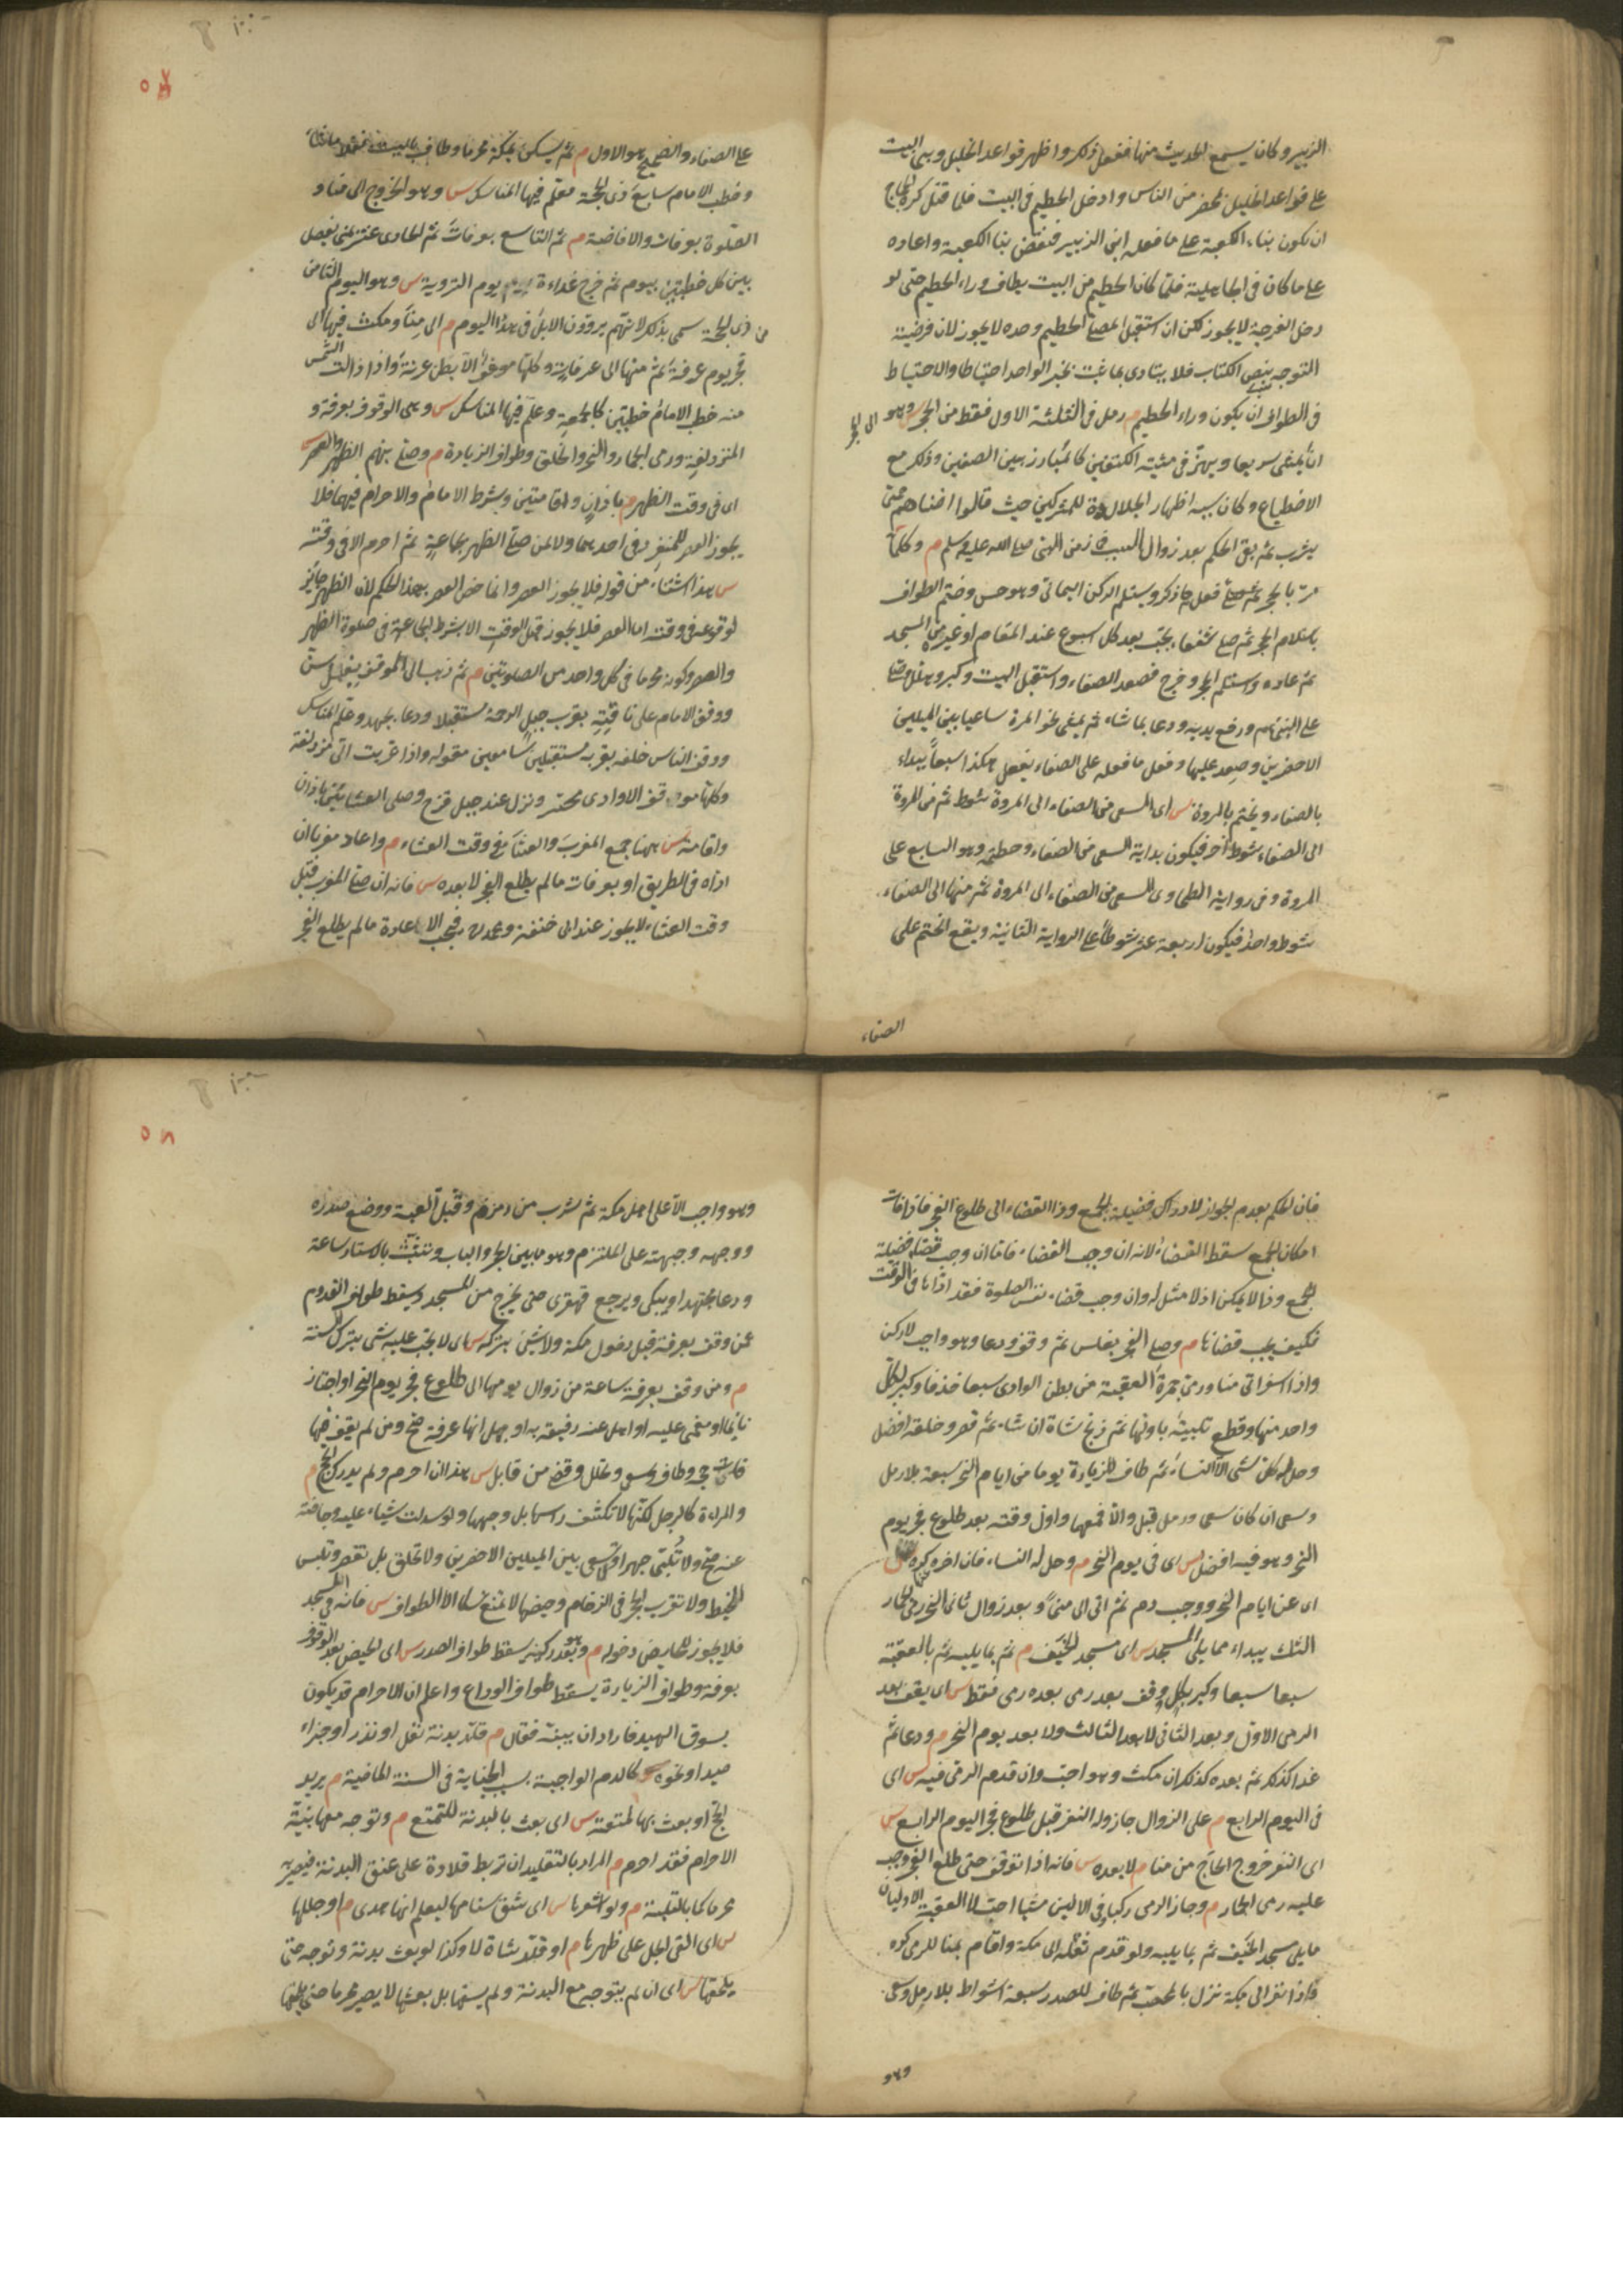 الزبير وكان يسمع الحديث منها ففعل ذلك واظهر قواعد الخليل وبنى البيت
على قواعد الخليل بمحضر من الناس وادخل الحطيم في البيت فلما قتل كره الحجاج
ان يكون بناء الكعبة على ما فعله ابن الزبير فنقض بنا الكعبة واعاده
على ما كان في الجاهلية فلما كان الحطيم من البيت يطاف وراء الحطيم حتى لو
دخل الفرجة لا يجوز لكن ان استقبل المصلي الحطيم وحده لا يجوز لان فرضية
التوجه بنص الكتاب فلا يتادى بما ثبت بخبر الواحد احتياطا والاحتياط
في الطواف ان يكون وراء الحطيم م رمل في الثلثة الاول فقط من الحجر س وهو الى الحجر
ان يمشى سريعا ويهز في مشيته الكتفين كالمبارز بين الصفين وذلك مع
الاضطباع وكان سببه اظهار الجلادة للمشركين حيث قالوا اضناهم حمى
يثرب ثم بقى الحكم بعد زوال السبب في زمن النبى صلى الله عليه وسلم م وكلما
مر بالحجر فعل ما ذكر ويستلم الركن اليمانى وهو حسن وختم الطواف
باستلام الحجر ثم صلى شفعا يجب بعد كل اسبوع عند المقام او غيره من المسجد
ثم عاده واستلم الحجر وخرج فصعد الصفاء واستقبل البيت وكبر وهلل وصلى
على النبى عم ورفع يديه ودعا بما شاء ثم يمشى نحو المرة ساعيا بين الميلين
الاخضرين وصعد عليها وفعل ما فعله على الصفاء يفعل هكذا سبعاً يبداء
بالصفاء ويختم بالمروة س اى السعى من الصفاء الى المروة شوط ثم من المروة
الى الصفاء شوط آخر فيكون بداية السعى من الصفاء وختمه وهو السابع على
المروة وفى رواية الطحاوى السعى من الصفاء الى المروة ثم منها الى الصفاء
شوط واحد فيكون اربعة عشر شوطا على الرواية الثانية ويقع الختم على
الصفاء
على الصفاء والصحيح هو الاول م ثم يسكن بمكة محرما وطاف بالبيت نفلا ما شاء
وخطب الامام سابع ذى الحجة معلم فيها المناسك س وهو الخروج الى منا و
الصلوة بعرفات والافاضة م ثم التاسع بعرفات ثم الحادى عشر بمنى يفصل
بين كل خطبتين بيوم ثم خرج غداءة يوم التروية س وهو اليوم الثامن
من ذى الحجة سمى بذلك لانهم يروون الابل في هذا اليوم م الى منًا ومكث فيها الى
فجر يوم عرفة ثم منها الى عرفات وكلها موقف الا بطن عرنة واذا زالت الشمس
منه خطب الامام خطبتين كالجمعة وعلم فيها المناسك س وهى الوقوف بعرفة و
المزدلفة ورمى الجمار والنحر والحلق وطواف الزيارة م وصلى بهم الظهر والعصر س
اى في وقت الظهر م باذان واقامتين وبشرط الامام والاحرام فيهما فلا
يجوز العصر للمنفرد في احدهما ولا لمن صلى الظهر بجماعة ثم احرم الا في وقته
س هذا استثناء من قوله فلا يجوز العصر وانما خص العصر بهذا الحكم لان الظهر جائز
لوقوعه في وقته اما العصر فلا يجوز قبل الوقت الا بشرط الجماعة في صلوة الظهر
والعصر وكونه محرما في كل واحد من الصلوتين م ثم ذهب الى الموقف بغسل سن
ووقف الامام على ناقته بقرب جبل الرحمة مستقبلا ودعا بجهد وعلم المناسك
ووقف الناس خلفه بقربه مستقبلين سامعين مقوله واذا غربت اتى مزدلفة
وكلها موقف الا وادى محسر ونزل عند جبل قزح وصلى العشائين باذان
واقامة س هنا جمع المغرب والعشاء في وقت العشاء م واعاد مغربا ان
اداه في الطريق او بعرفات ما لم يطلع الفجر لا بعده س فانه ان صلى المغرب قبل
وقت العشاء لا يجوز عند ابى حنيفة ومحمد رح فيجب الاعادة ما لم يطلع الفجر
٥٨
فان الحكم بعدم الجواز لادراك فضيلة الجمع وذا القضاء الى طلوع الفجر فاذا فات
امكان الجمع سقط القضاء لانه ان وجب القضاء فاما ان وجب قضاء فضيلة
الجمع وذا لا يمكن اذ لا مثل له وان وجب قضاء نفس الصلوة فقد اداها في الوقت
فكيف يجب قضاءها م وصلى الفجر بغلس ثم وقف ودعا وهو واجب لا ركن
واذا اسفر اتى منا ورمى جمرة العقبة من بطن الوادى سبعا خذفا وكبر لكل
واحد منها وقطع تلبيته باولها ثم ذبح شاة ان شاء ثم قصر وحلقه افضل
وحل له كل شى الا النساء ثم طاف للزيارة يوما من ايام النحر سبعة بلا رمل
وسعى ان كان سعى ورمل قبل والا فمعهما واول وقته بعد طلوع فجر يوم
النحر وهو فيه افضل س اى في يوم النحر م وحل له النساء فان اخره كره س
اى عن ايام النحر ووجب دم ثم اتى الى منًى وبعد زوال ثانى النحر رمى الجمار
الثلث يبداء مما يلى المسجد س اى مسجد الخيف م ثم بما يليه ثم بالعقبة
سبعا سبعا وكبر لكل ووقف بعد رمى بعده رمى فقط س اى يقف بعد
الرمى الاول وبعد الثانى لا بعد الثالث ولا بعد يوم النحر م ودعا ثم
غدا كذلك ثم بعده كذلك ان مكث وهو احب وان قدم الرمى فيه س اى
في اليوم الرابع م على الزوال جاز وله النفر قبل طلوع فجر اليوم الرابع س
اى النفر خروج الحاج من منا م لا بعده س فانه اذا توقف حتى طلع الفجر وجب
عليه رمى الجمار م وجاز الرمى راكبا وفى الاولين مشيا احب لا العقبة الاوليان
ما يلى مسجد الخيف ثم بما يليه ولو قدم ثقله الى مكة واقام بمنا للرمى كره
واذا نفر الى مكة نزل بالمحصب ثم طاف للصدر سبعة اشواط بلا رمل وسعى
وهو
٥٨
وهو واجب الا على اهل مكة ثم شرب من زمزم وقبل العتبة ووضع صدره
ووجهه وجبهته على الملتزم وهو ما بين الحجر والباب وتشبث بالاستار ساعة
ودعا مجتهدا ويبكى ويرجع قهقرى حتى يخرج من المسجد ويسقط طواف القدوم
عمن وقف بعرفة قبل دخول مكة ولا شئ بتركه س اى لا يجب عليه شى بترك السنة
م ومن وقف بعرفة ساعة من زوال يومها الى طلوع فجر يوم النحر او اجتاز
نايما او مغمى عليه او اهل عنه رفيقه به او جهل انها عرفة صح ومن لم يقف فيها
فات حجه وطاف وسعى وتحلل وقضى من قابل س هذا ان احرم ولم يدرك الحج م
والمراة كالرجل لكنها لا تكشف راسها بل وجهها ولو سدلت شياء عليه وجافته
عنه صح ولا تُلبى جهرا ولا تسعى بين الميلين الاخضرين ولا تحلق بل تقصر وتلبس
المخيط ولا تقرب الحجر في الزحام وحيضها لا تمنع نسكا الا الطواف س فانه في المسجد
فلا يجوز للحايض دخوله م وهو بعد ركنيه يسقط طواف الصدر س اى الحيض بعد الوقوف
بعرفة وطواف الزيارة يسقط طواف الوداع واعلم ان الاحرام قد يكون
بسوق الهدى فاراد ان يبينه فقال م قلد بدنة نفل او نذر او جزاء
صيد او نحوه س كالدم الواجبة بسبب الجناية في السنة الماضية م يريد
الحج او بعث بها لمتعة س اى بعث بالبدنة للتمتع م وتوجه معها بنية
الاحرام فقد احرم م المراد بالتقليد ان تربط قلادة على عنق البدنة فيصير به
محرما كما بالتلبية م ولو اشعرها س اى شق سنامها ليعلم انها هدى م او جللها
س اى القى الجل على ظهرها م او قلد شاة لا وكذا لو بعث بدنة وتوجه حتى
يلحقها س اى ان لم يتوجه مع البدنة ولم يسقها بل بعثها لا يصير محرما حتى يلحقها